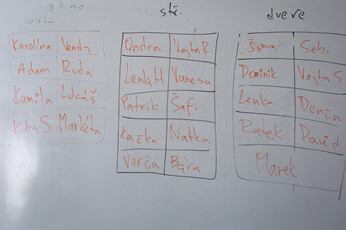 okno
stě.
dveře
Karolína Vendy
Adam Ruda
Kamila Lukáš
Kuba S Markéta
Ondra Vojta P
Lenka H Vanesa
Patrik Šafi
Kačka Natka
Verča Bára
Sebi
Dominik Vojta S
Lenka Denča
Radek David
Marek